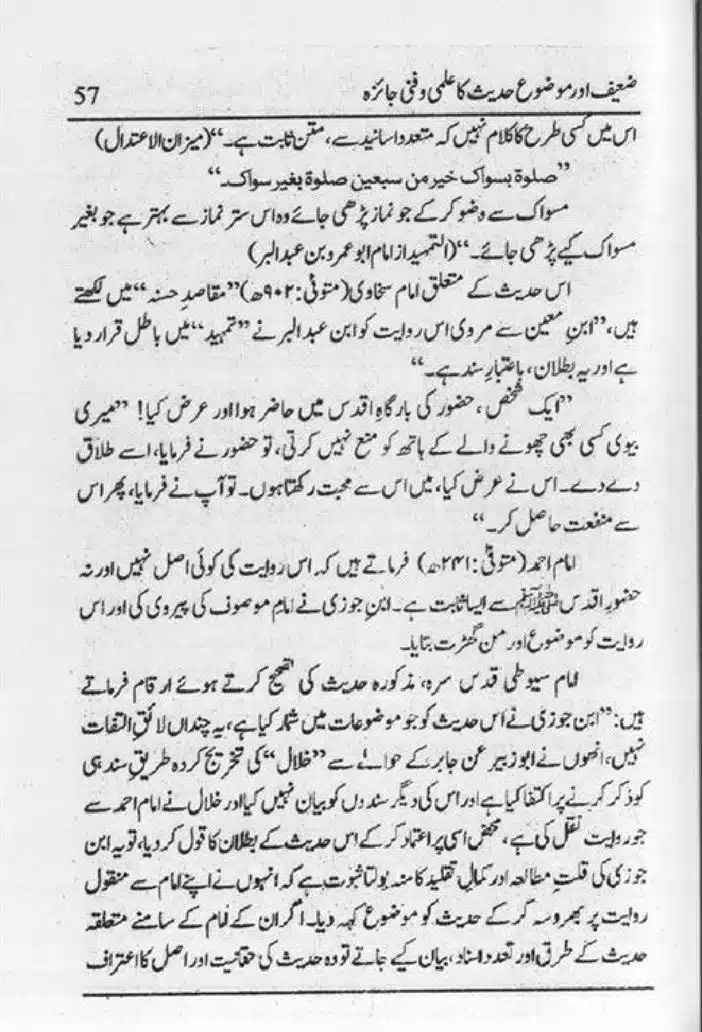 ضعیف اور موضوع حدیث کا علمی و فنی جائزہ 57
اس میں کسی طرح کا کلام نہیں کہ متعدد اسانید سے، متن ثابت ہے۔“ (میزان الاعتدال)
”صلوة بسواک خیر من سبعین صلوة بغیر سواک۔“
مسواک سے وضو کر کے جو نماز پڑھی جائے وہ اس ستر نماز سے بہتر ہے جو بغیر
مسواک کیے پڑھی جائے۔“ (التمہید از امام ابو عمرو بن عبد البر)
اس حدیث کے متعلق امام سخاوی (متوفیٰ: ۹۰۲ھ) ”مقاصدِ حسنہ“ میں لکھتے
ہیں، ”ابنِ معین سے مروی اس روایت کو ابن عبد البر نے ”تمہید“ میں باطل قرار دیا
ہے اور یہ بطلان، باعتبارِ سند ہے۔“
”ایک شخص، حضور کی بارگاہِ اقدس میں حاضر ہوا اور عرض کیا! ”میری
بیوی کسی بھی چھونے والے کے ہاتھ کو منع نہیں کرتی، تو حضور نے فرمایا، اسے طلاق
دے دے۔ اس نے عرض کیا، میں اس سے محبت رکھتا ہوں۔ تو آپ نے فرمایا، پھر اس
سے منفعت حاصل کر۔“
امام احمد (متوفیٰ: ۲۴۱ھ) فرماتے ہیں کہ اس روایت کی کوئی اصل نہیں اور نہ
حضورِ اقدس ﷺ سے ایسا ثابت ہے۔ ابنِ جوزی نے امامِ موصوف کی پیروی کی اور اس
روایت کو موضوع اور من گھڑت بتایا۔
امام سیوطی قدس سرہ، مذکورہ حدیث کی تصحیح کرتے ہوئے ارقام فرماتے
ہیں: ”ابن جوزی نے اس حدیث کو جو موضوعات میں شمار کیا ہے، یہ چنداں لائقِ التفات
نہیں، انھوں نے ابوزبیر عن جابر کے حوالے سے ”خلال“ کی تخریج کردہ طریقِ سند ہی
کو ذکر کرنے پر اکتفا کیا ہے اور اس کی دیگر سندوں کو بیان نہیں کیا اور خلال نے امام احمد سے
جو روایت نقل کی ہے، محض اسی پر اعتماد کر کے اس حدیث کے بطلان کا قول کر دیا، تو یہ ابن
جوزی کی قلتِ مطالعہ اور کمالِ تقلید کا منہ بولتا ثبوت ہے کہ انہوں نے اپنے امام سے منقول
روایت پر بھروسہ کر کے حدیث کو موضوع کہہ دیا۔ اگر ان کے امام کے سامنے متعلقہ
حدیث کے طرق اور تعدد اسناد، بیان کیے جاتے تو وہ حدیث کی حقانیت اور اصل کا اعتراف